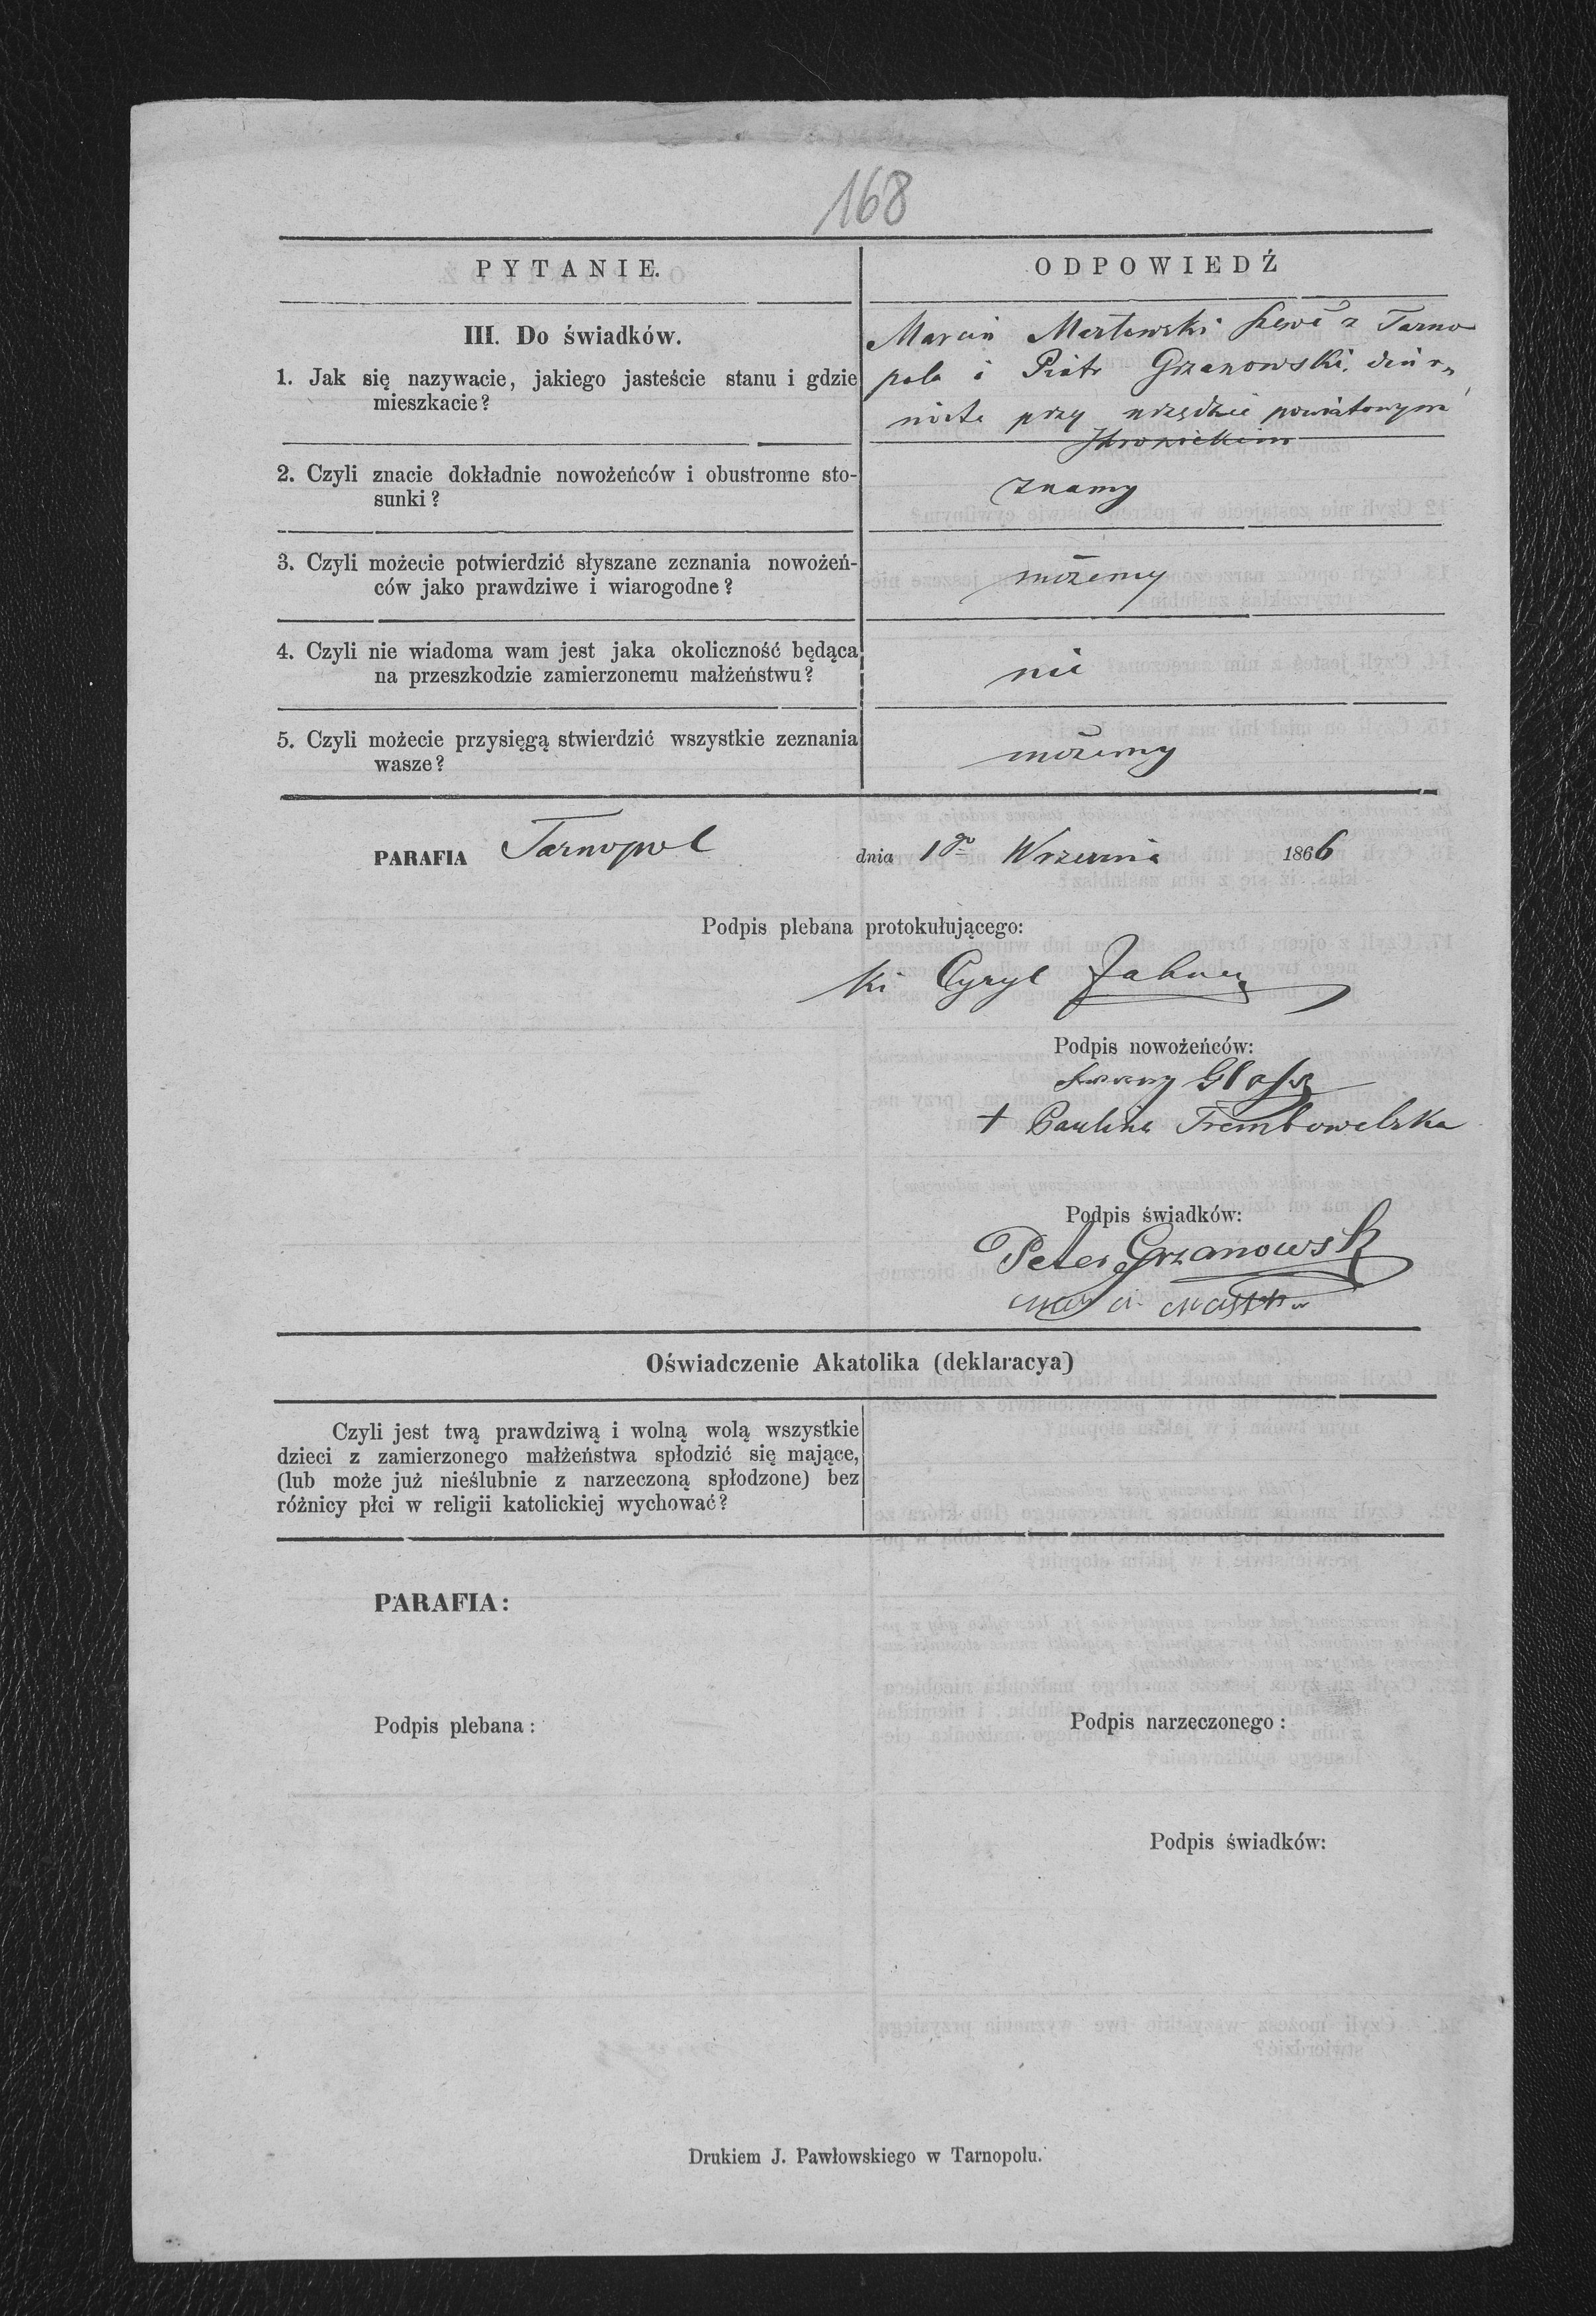 168
PYTANIE.
ODPOWIEDŹ
III. Do świadków.
1. Jak się nazywacie, jakiego jasteście stanu i gdzie
mieszkacie?
Marcin szewc z Tarno
pola i Piotr Grzanowski, diur„
nista przy urzędzie powiatowym
2. Czyli znacie dokładnie nowożeńców i obustronne sto-
sunki?
znamy
3. Czyli możecie potwierdzić słyszane zeznania nowożeń-
ców jako prawdziwe i wiarogodne?
możemy
4. Czyli nie wiadoma wam jest jaka okoliczność będąca
na przeszkodzie zamierzonemu małżeństwu?
nie
5. Czyli możecie przysięgą stwierdzić wszystkie zeznania
wasze?
możemy
PARAFIA Tarnopol dnia 1go Września 1866
Podpis plebana protokułującego:
Cyryl
Podpis nowożeńców:
+ Paulina Trembowelska
Podpis świadków:
Peter Grzanowski
Oświadczenie Akatolika (deklaracya)
Czyli jest twą prawdziwą i wolną wolą wszystkie
dzieci z zamierzonego małżeństwa spłodzić się mające,
(lub może już nieślubnie z narzeczoną spłodzone) bez
różnicy płci w religii katolickiej wychować?
PARAFIA:
Podpis plebana:
Podpis narzeczonego:
Podpis świadków:
Drukiem J. Pawłowskiego w Tarnopolu.